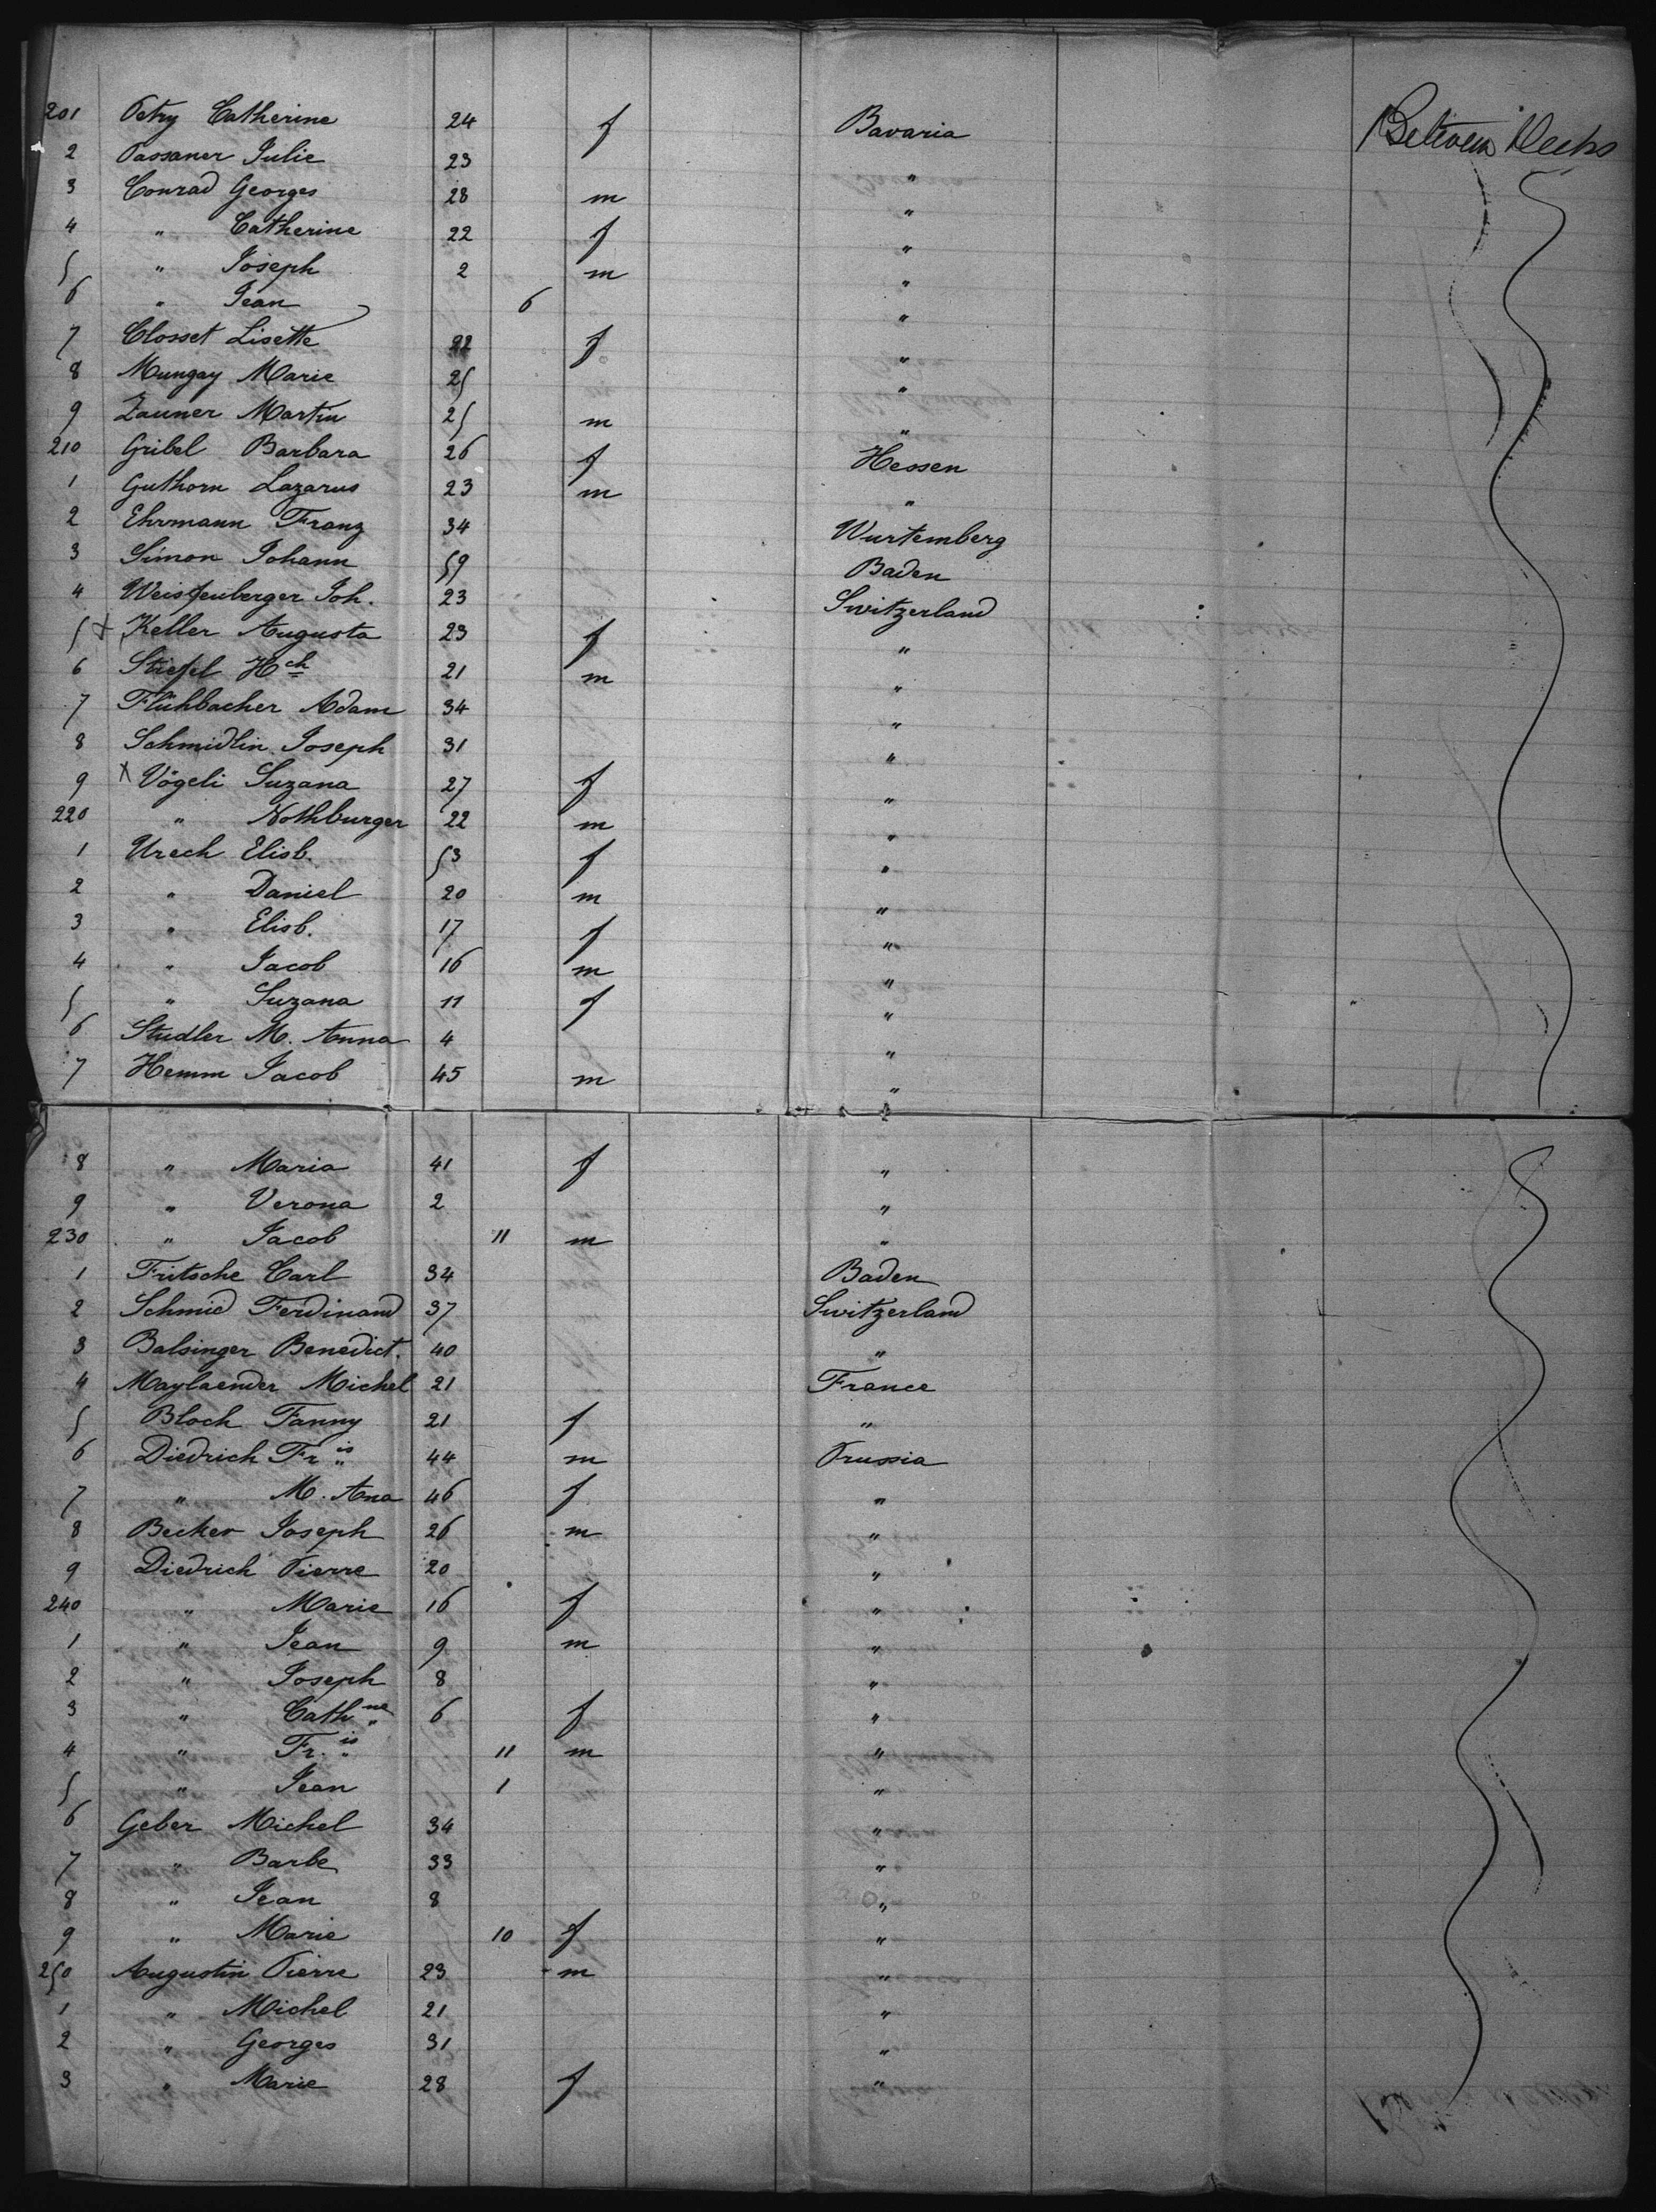 201 Petry Catherine 24 f Bavaria Between Decks
2 Passaner Julie 23 "
3 Conrad Georges 28 m "
4 " Catherine 22 f "
5 " Joseph 2 m "
6 " Jean 6 "
7 Closset Lisette 22 f "
8 Mungay Marie 25 "
9 Zauner Martin 25 m "
210 Gribel Barbara 26 f Hessen
1 Guthorn Lazarus 23 m "
2 Ehrmann Franz 34 Wurtemberg
3 Simon Johann 59 Baden
4 Weissenberger Joh. 23 Switzerland
5 x Keller Augusta 23 f "
6 Stiefel Hch 21 m "
7 Flühbacher Adam 34 "
8 Schmidlin Joseph 31 "
9 x Vögeli Suzana 27 f "
220 " Nothburger 22 m "
1 Urech Elisb. 53 f "
2 " Daniel 20 m "
3 " Elisb. 17 f "
4 " Jacob 16 m "
5 " Suzana 11 f "
6 Studler M. Anna 4 "
7 Hemm Jacob 45 m "
8 " Maria 41 f "
9 " Verona 2 "
230 " Jacob 11 m "
1 Fritsche Carl 34 Baden
2 Schmid Ferdinand 37 Switzerland
3 Balsinger Benedict. 40 "
4 Maylaender Michel 21 France
5 Bloch Fanny 21 f "
6 Diedrich Fr is 44 m Prussia
7 " M. Ana 46 f "
8 Becker Joseph 26 m "
9 Diedrich Pierre 20 "
240 " Marie 16 f "
1 " Jean 9 m "
2 " Joseph 8 "
3 " Cath ne 6 f "
4 " Fr. is 11 m "
5 " Jean 1 "
6 Geber Michel 34 "
7 " Barbe 33 "
8 " Jean 8 "
9 " Marie 10 f "
250 Augustin Pierre 23 m "
1 " Michel 21 "
2 " Georges 31 "
3 " Marie 28 f "